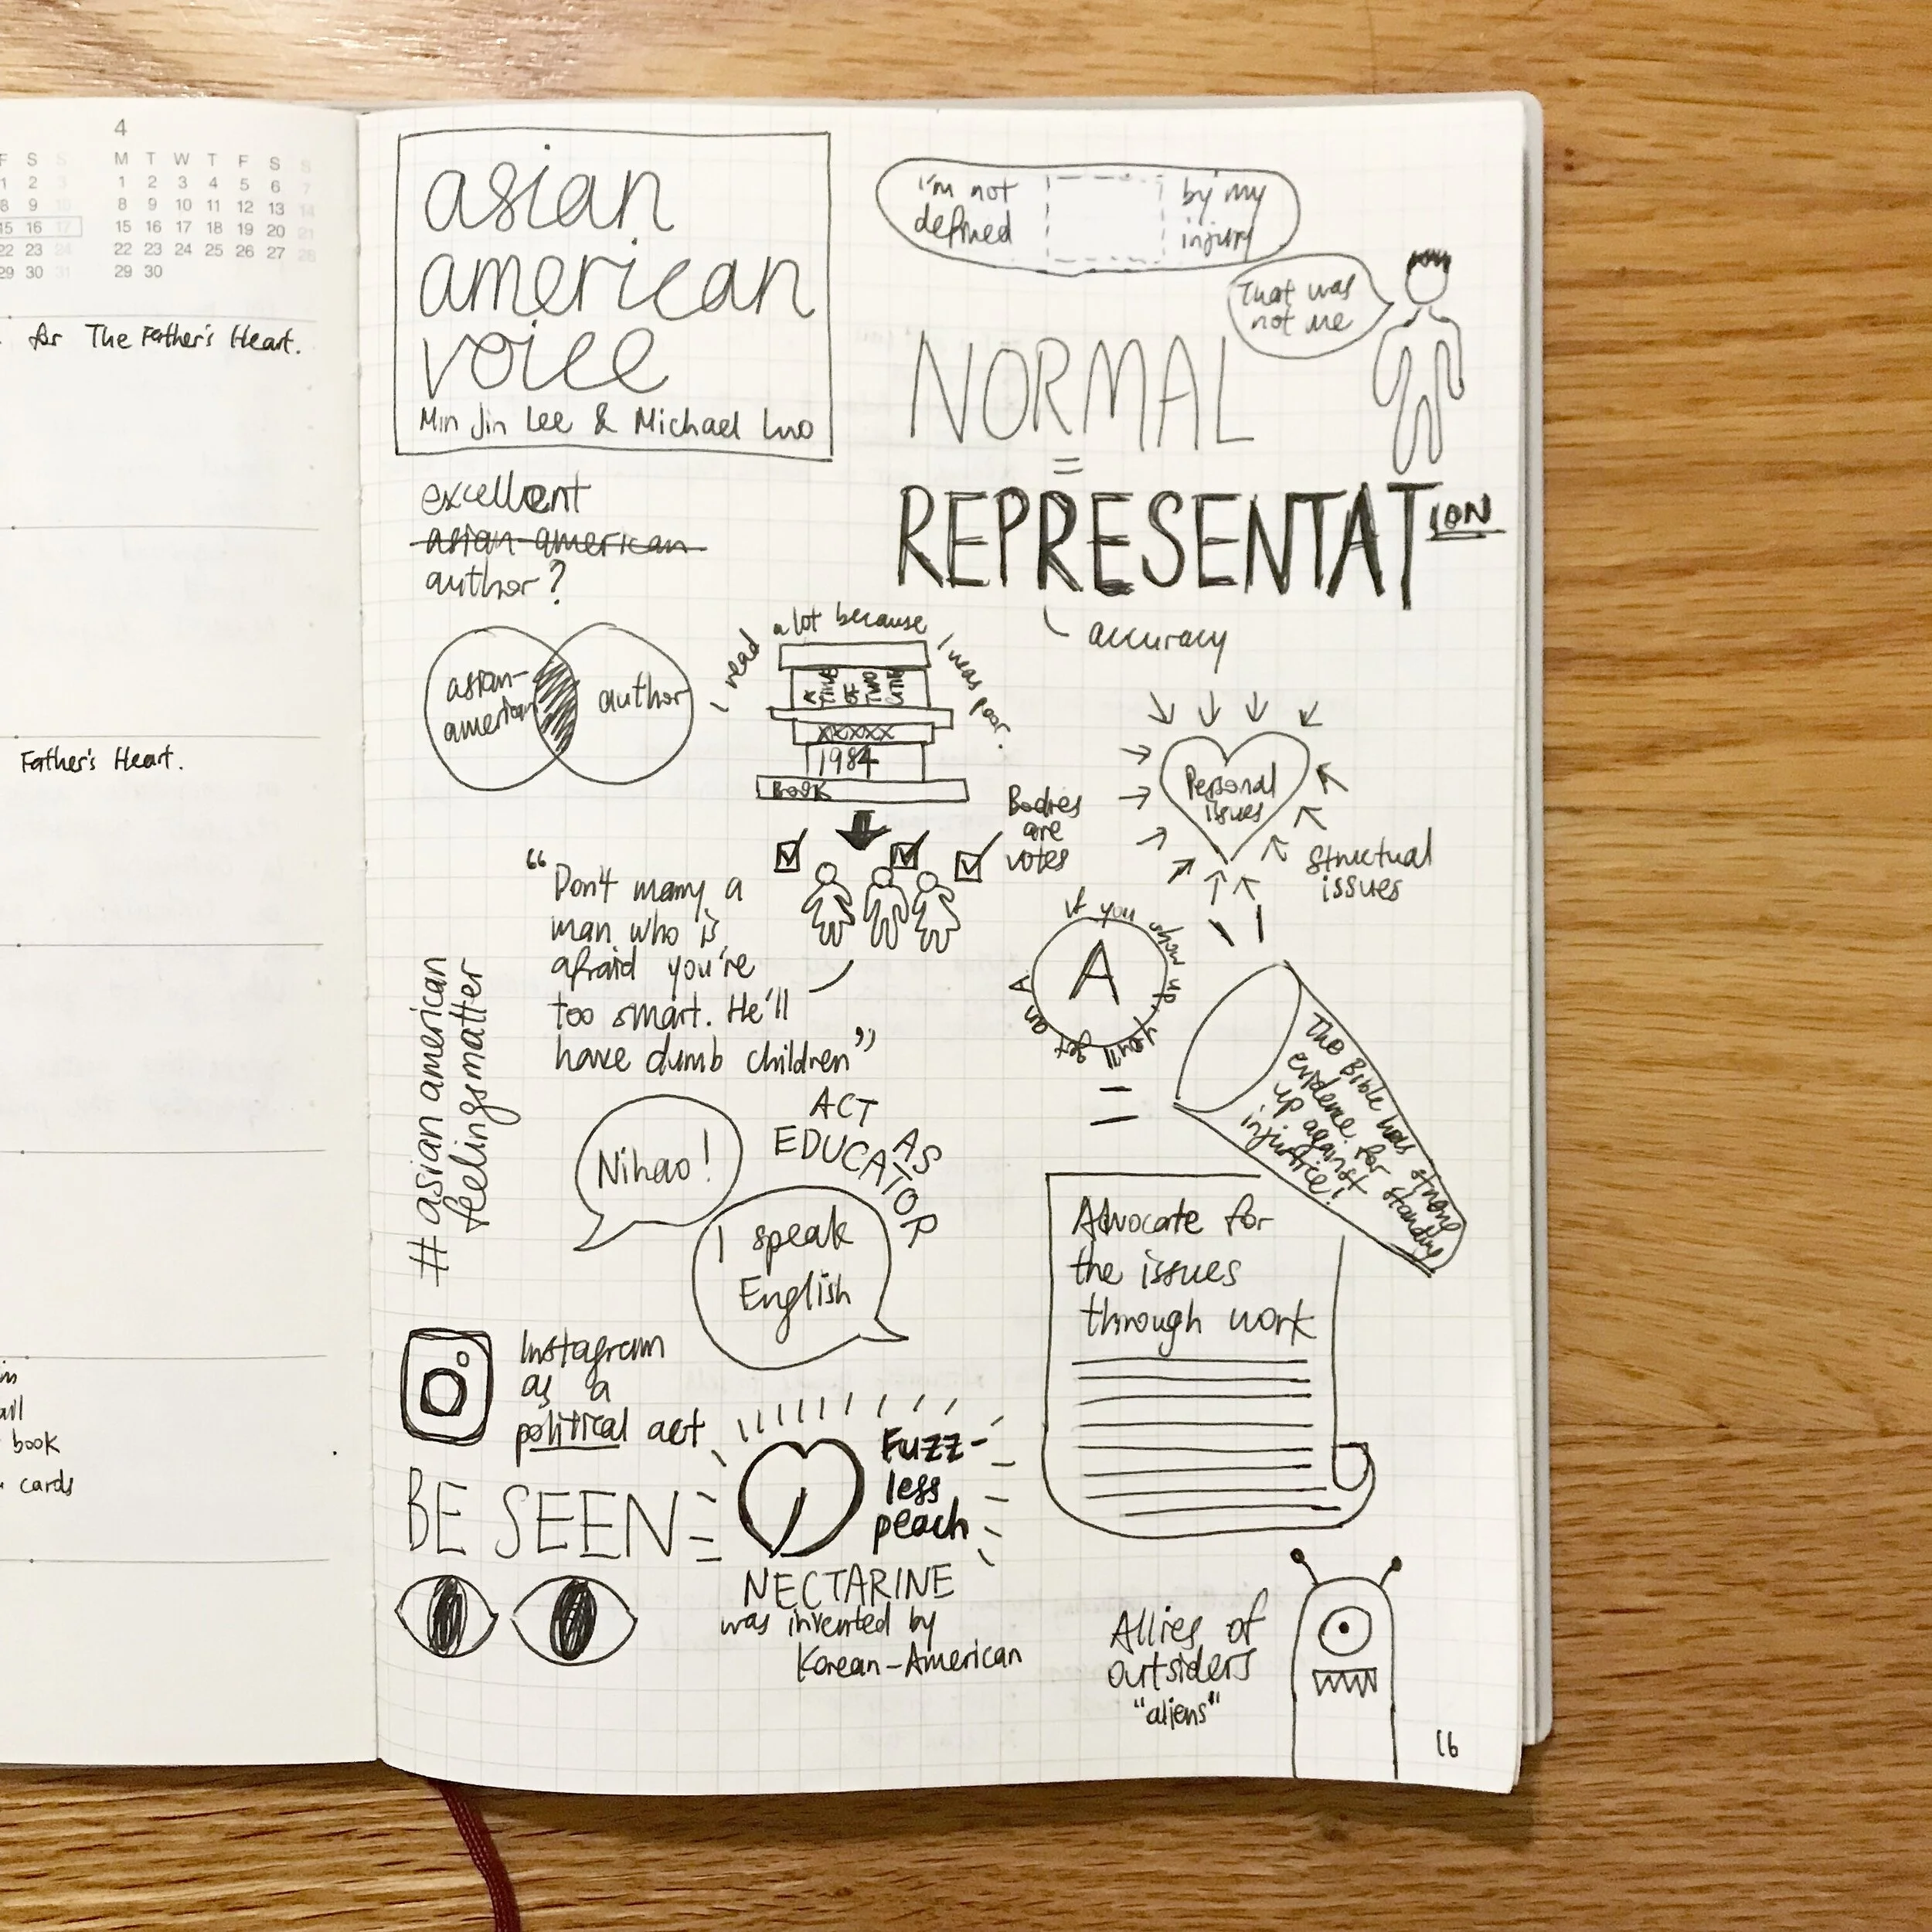 4
F S S
M T W T F S S
1 2 3
1 2 3 4 5 6 7
8 9 10
8 9 10 11 12 13 14
15 16 17
15 16 17 18 19 20 21
22 23 24
22 23 24 25 26 27 28
29 30 31
29 30
for The Father's Heart.
Father's Heart.
book
cards
asian
american
voice
Min Jin Lee & Michael Luo
excellent
asian-american
author?
asian-
american
author
I read a lot because I was poor.
A
OF
TWO
XXXXX
1984
BOOK
I'm not
defined
by my
injury
That was
not me
NORMAL
=
REPRESENTATION
accuracy
Personal
issues
structual
issues
Bodies
are
votes
"Don't marry a
man who is
afraid you're
too smart. He'll
have dumb children"
If you show up, you'll get an A
A
=
The Bible has strong
evidence for standing
up against
injustice!
Advocate for
the issues
through work
# asian american
feelings matter
Nihao!
ACT AS
EDUCATOR
I speak
English
Instagram
as a
political act
BE SEEN
Fuzz-
less
peach
NECTARINE
was invented by
Korean-American
Allies of
outsiders
"aliens"
16